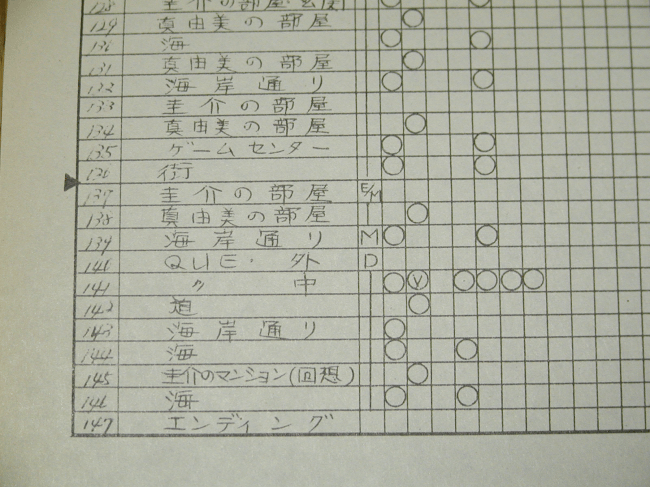 128 圭介の部屋玄関
129 真由美の部屋 ○
130 海 ○ ○
131 真由美の部屋 ○
132 海岸通り ○ ○
133 圭介の部屋
134 真由美の部屋 ○
135 ゲームセンター ○ ○
136 街 ○ ○
137 圭介の部屋 E/M
138 真由美の部屋 ○
139 海岸通り M ○ ○
140 QUE・外 D
141 〃 中 ○ V ○ ○ ○ ○
142 道 ○
143 海岸通り ○
144 海 ○ ○
145 圭介のマンション(回想) ○
146 海 ○ ○
147 エンディング